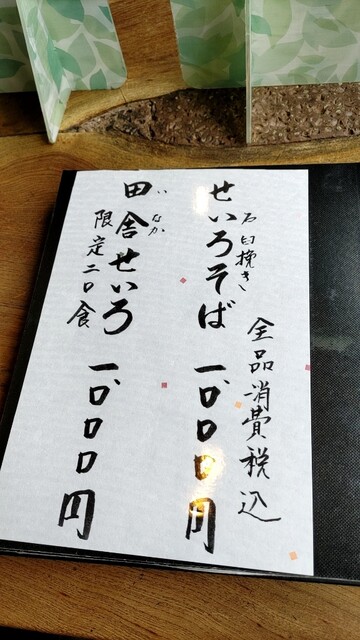 全品消費税込
石臼挽き
せいろそば 一、〇〇〇円
いなか
田舎せいろ 一、〇〇〇円
限定二〇食